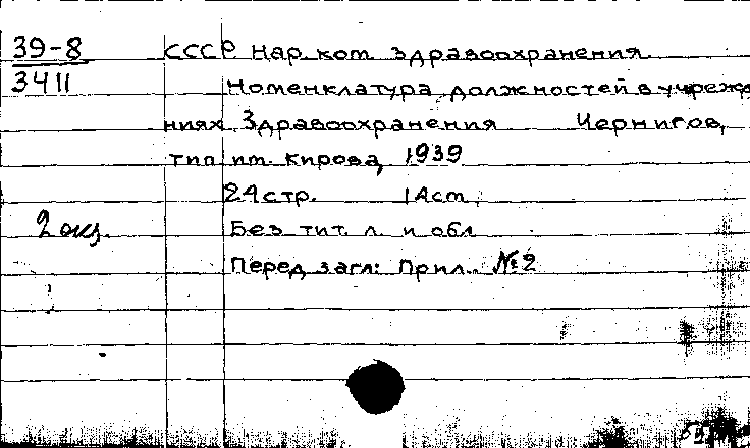 39-8
3411
СССР Нар. ком. здравоохранения.
Номенклатура должностей в учрежде
ниях Здравоохранения Чернигов,
тип. им. Кирова, 1939
24 стр.
Без тит. л. и обл.
2 экз.
Перед загл: Прил. №2